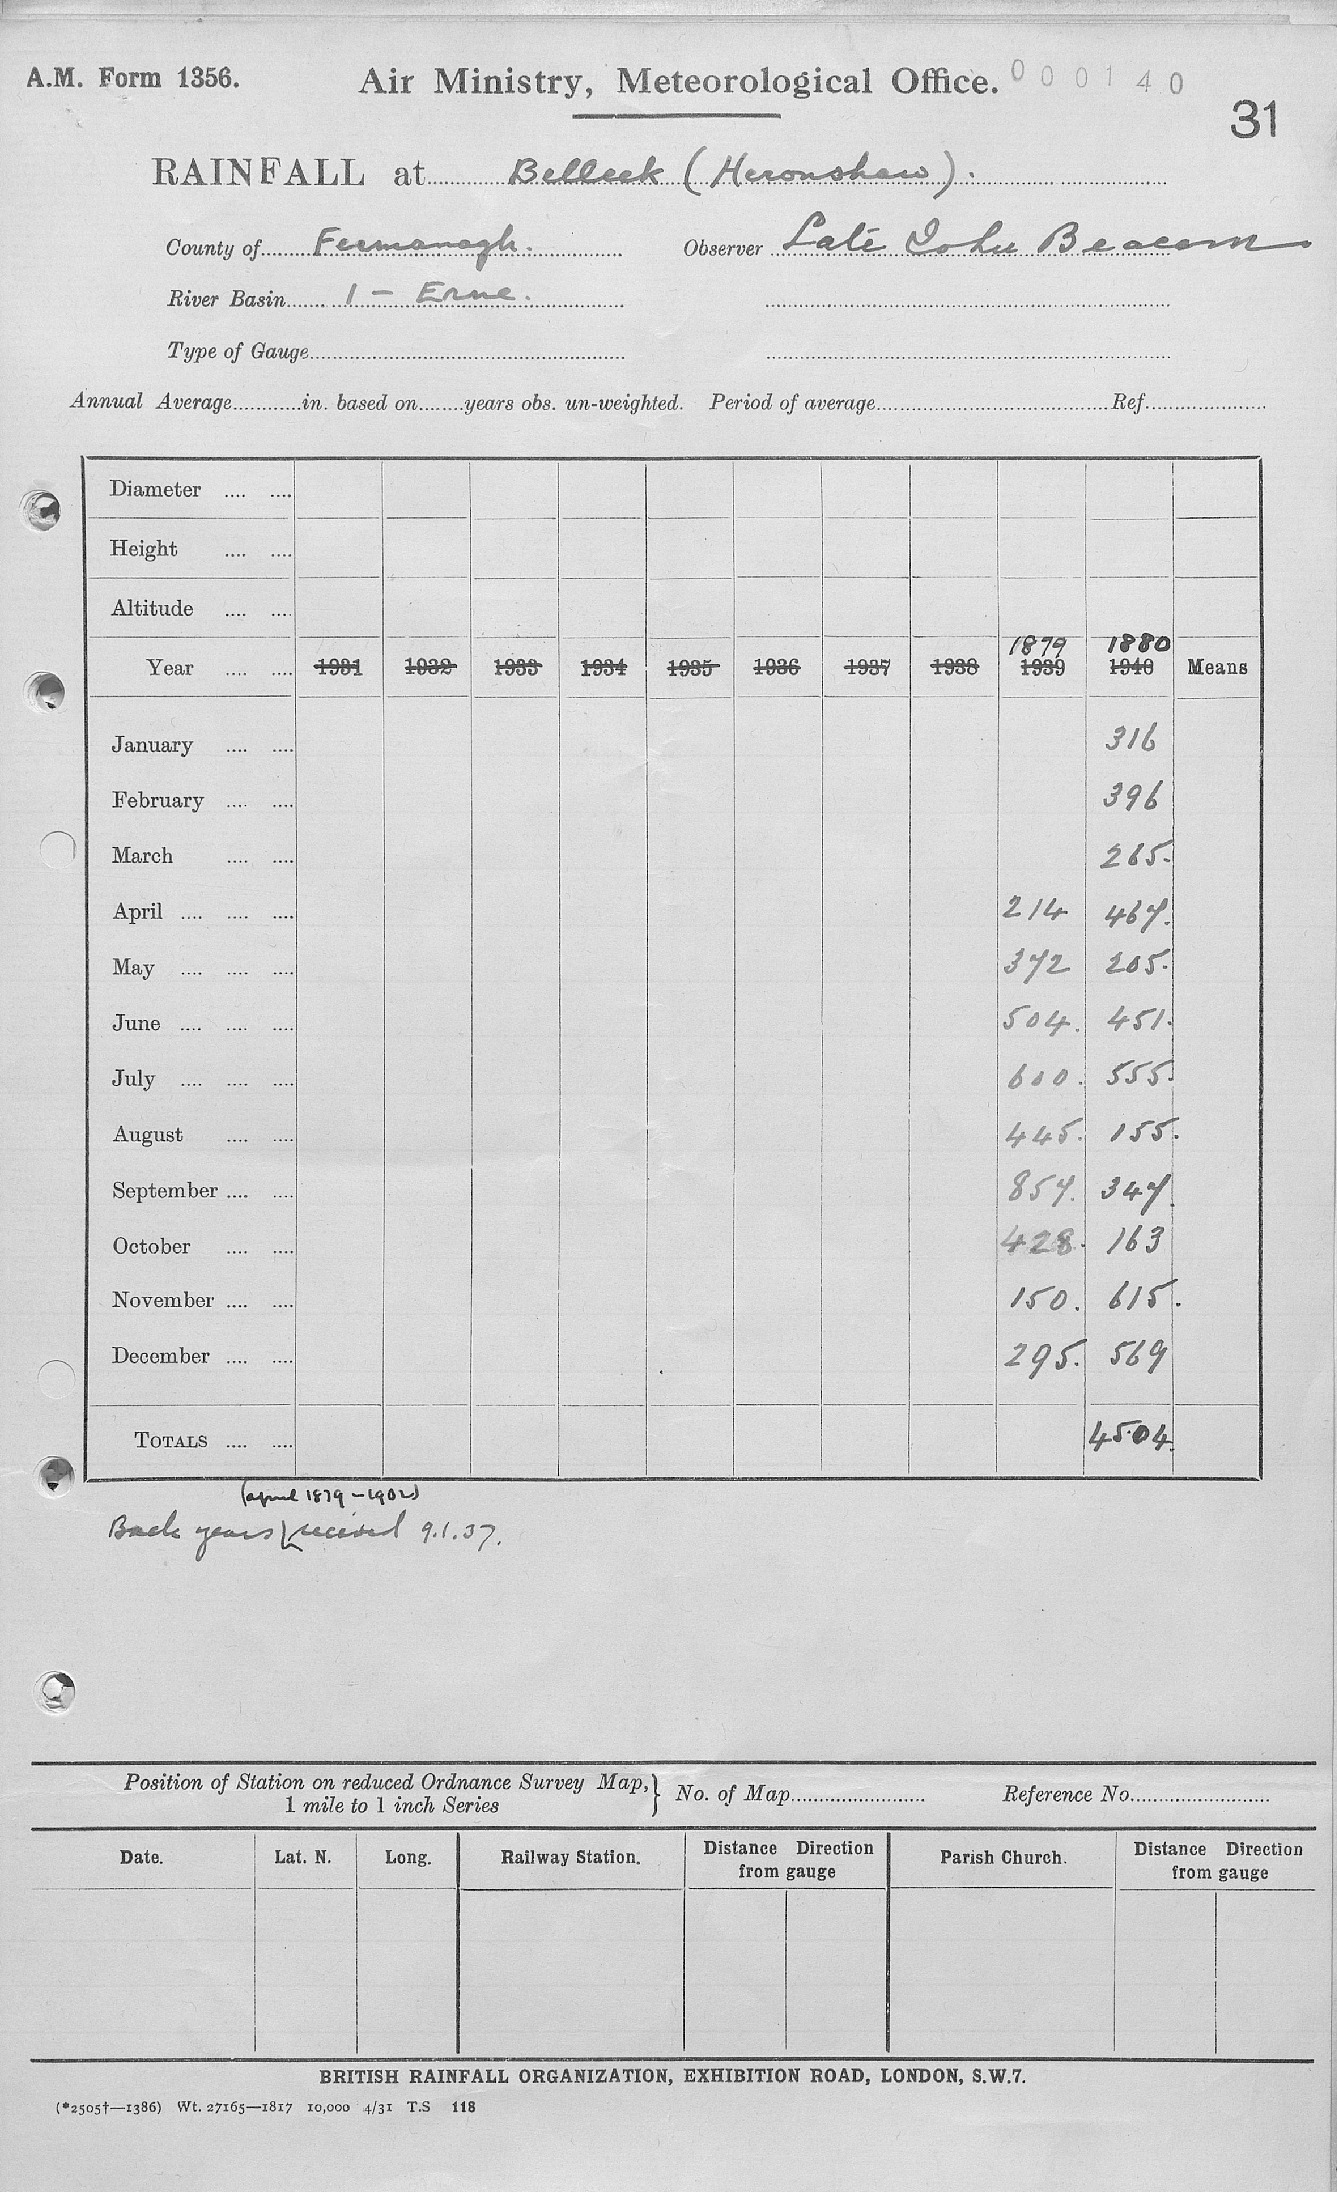 A.M. Form 1356. Air Ministry, Meteorological Office. 000140
31
RAINFALL at Belleek (Heronshaw).
County of Fermanagh. Observer Late John Beacom
River Basin 1 - Erne.
Type of Gauge
Annual Average in. based on years obs. un-weighted. Period of average Ref.
Diameter
Height
Altitude
1879 1880
Year 1931 1932 1933 1934 1935 1936 1937 1938 1939 1940 Means
January 316
February 396
March 265.
April 214 467.
May 372 205.
June 504. 451.
July 600. 555.
August 445. 155.
September 857. 347.
October 428. 163
November 150. 615.
December 295. 569
TOTALS 4504
(april 1879-1902)
Back years received 9.1.37.
Position of Station on reduced Ordnance Survey Map, } No. of Map Reference No.
1 mile to 1 inch Series
Date. Lat. N. Long. Railway Station. Distance Direction from gauge Parish Church. Distance Direction from gauge
BRITISH RAINFALL ORGANIZATION, EXHIBITION ROAD, LONDON, S.W.7.
(*2505†—1386) Wt. 27165—1817 10,000 4/31 T.S 118